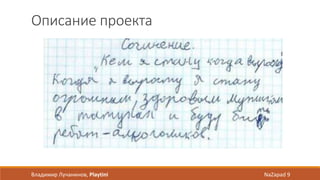 Описание проекта
Сочинение.
„Кем я стану когда вырасту
Когда я вырасту я стану
огромным, здоровым мужиком
в татухах и буду бить
ребят-алкоголиков.
Владимир Лучанинов, Playtini
NaZapad 9